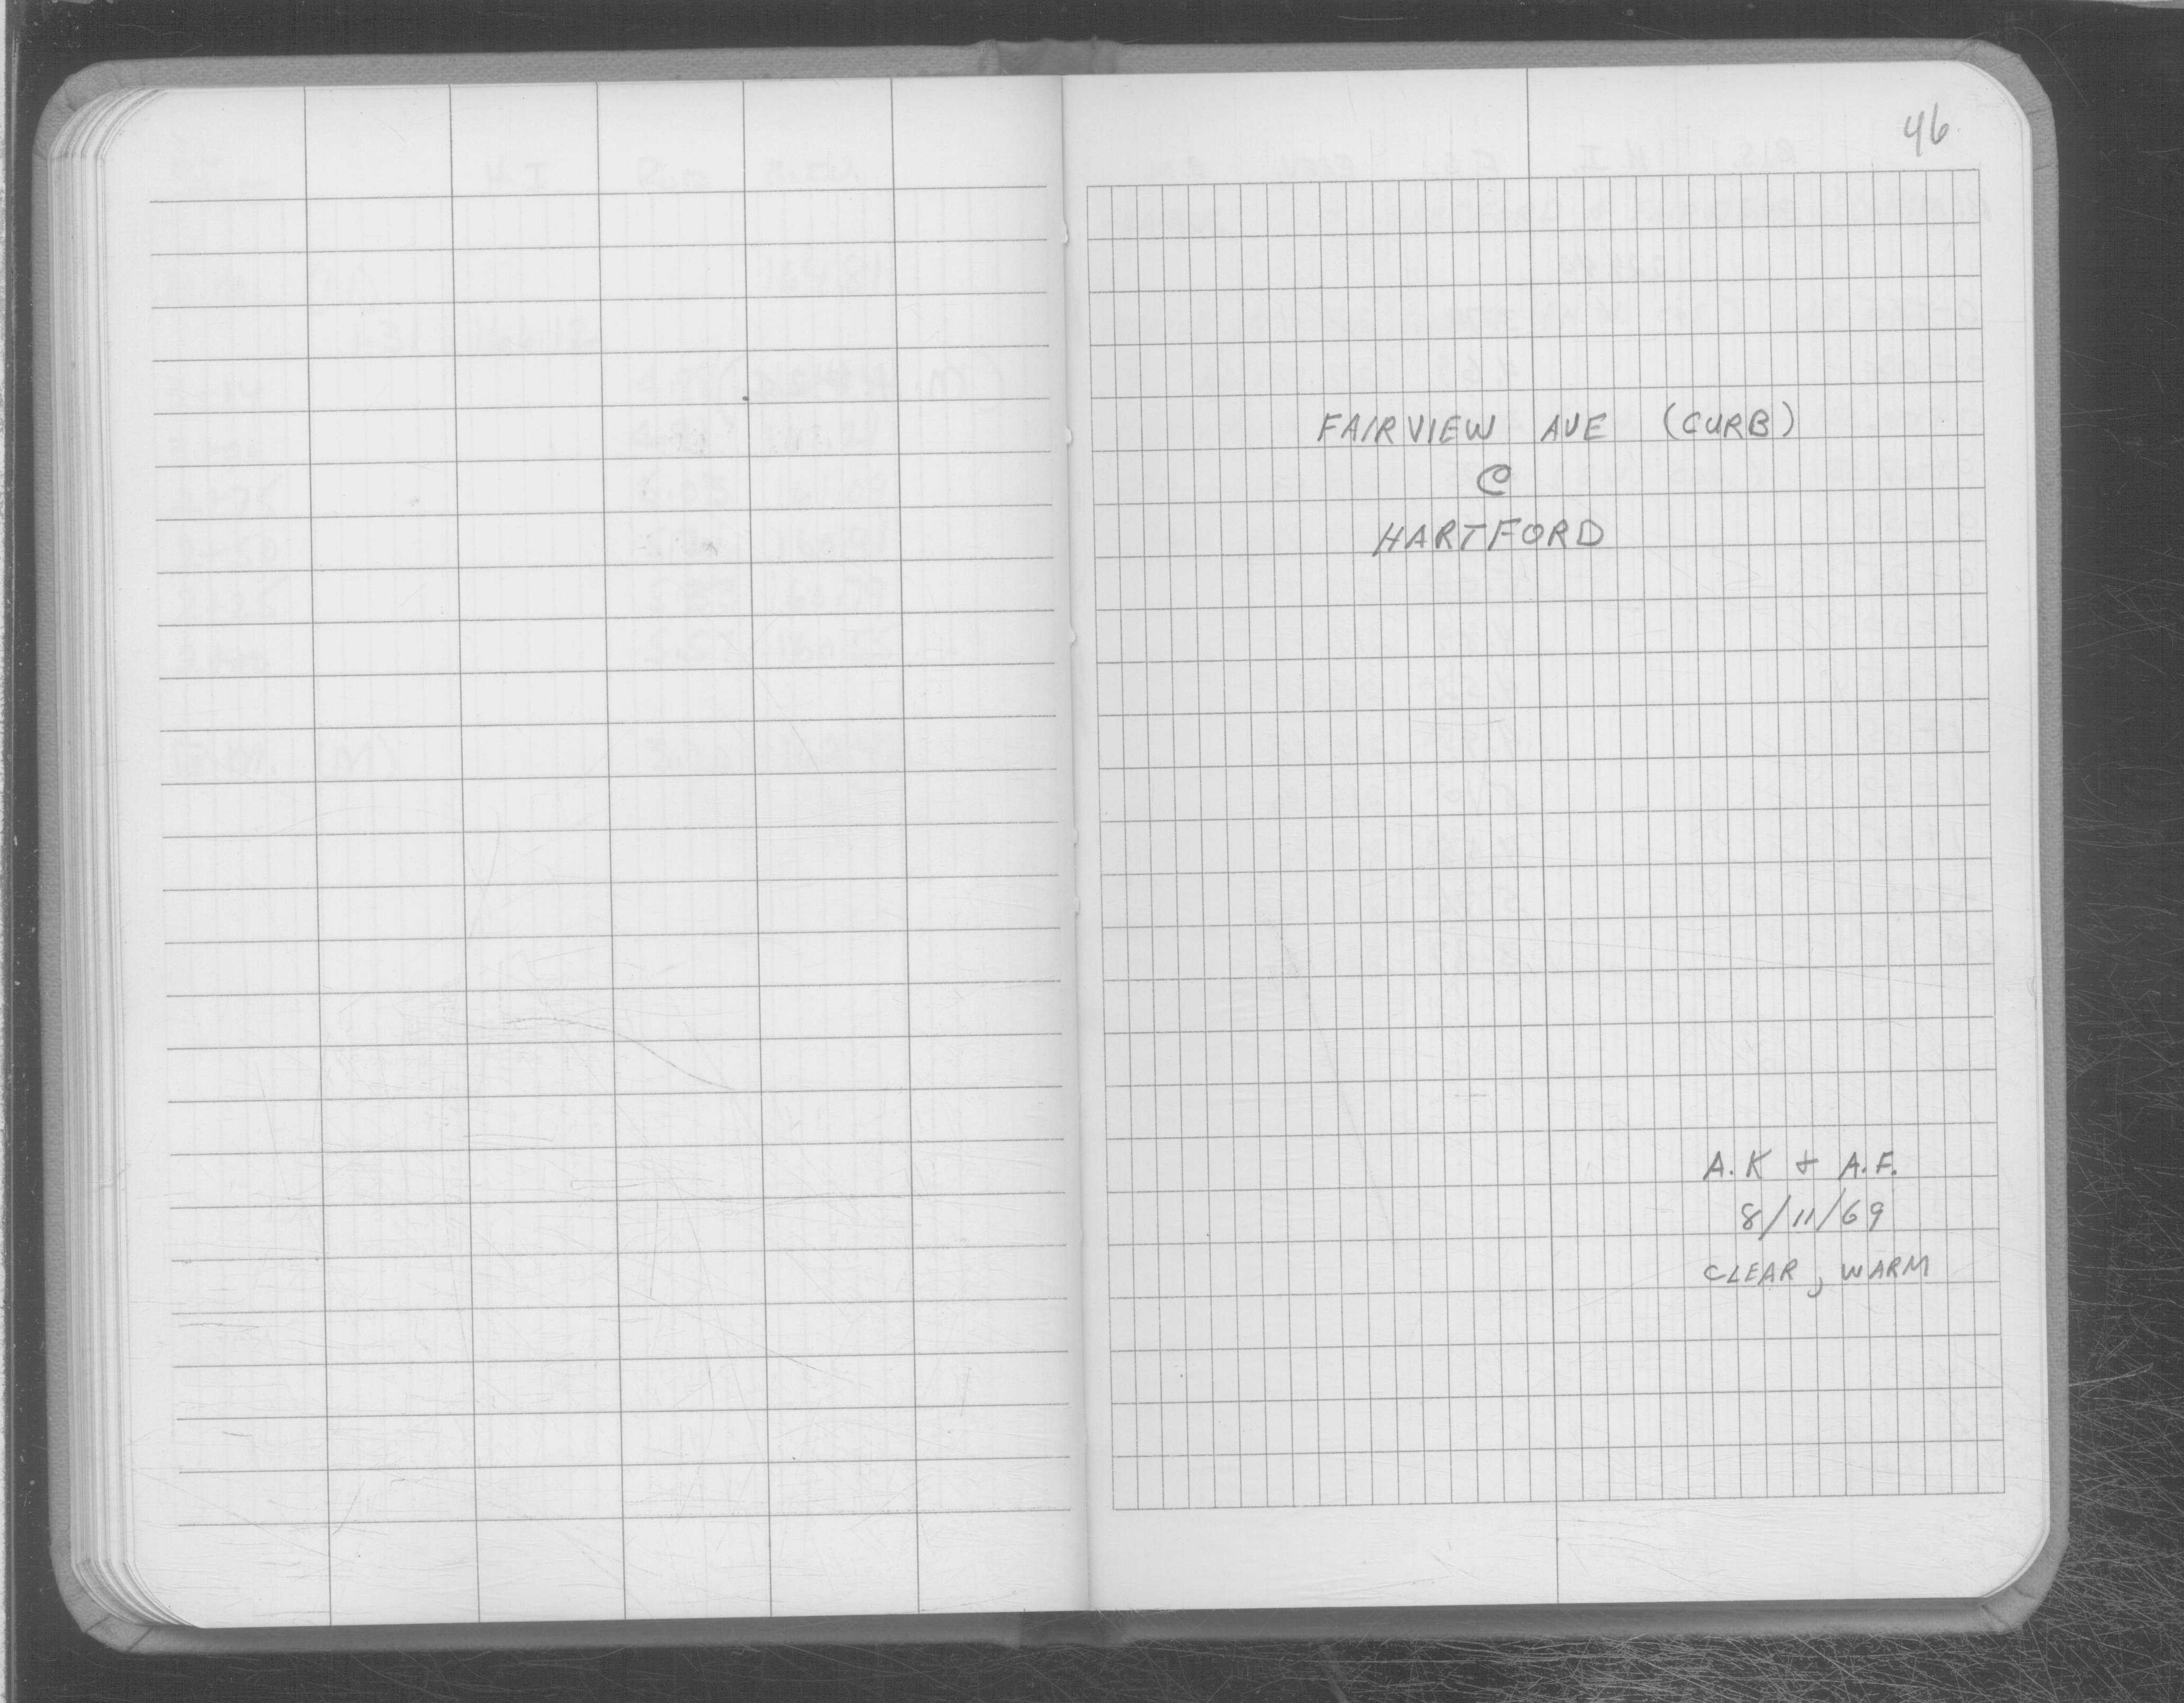 46
FAIRVIEW AVE (CURB)
@
HARTFORD
A.K & A.F.
8/11/69
CLEAR, WARM